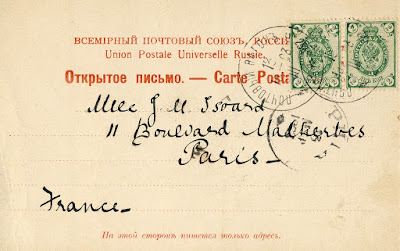 ВСЕМІРНЫЙ ПОЧТОВЫЙ СОЮЗЪ, РОССІЯ
Union Postale Universelle Russie.
Открытое письмо. — Carte Posta
J M
11 Boulevard Malherbes
Paris —
France —
На этой сторонѣ пишется только адресъ.